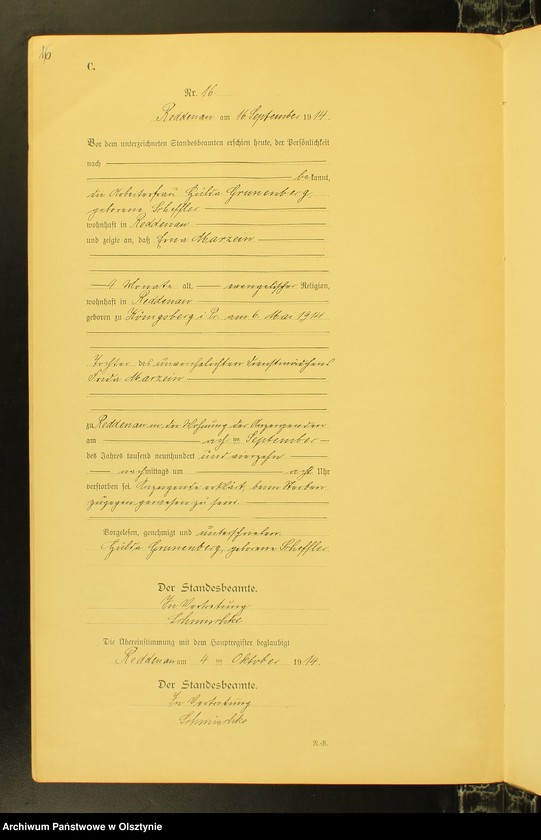 16
C.
Nr. 16
Reddenau am 16 September 1914.
Vor dem unterzeichneten Standesbeamten erschien heute, der Persönlichkeit
nach
bekannt,
die Arbeiterfrau Hulda Grunenberg,
geborene Scheffler
wohnhaft in Reddenau
und zeigte an, daß Erna Marzein
4 Monate alt, evangelischer Religion,
wohnhaft in Reddenau
geboren zu Königsberg i. Pr. am 6. Mai 1914
Tochter des unverehelichten Dienstmädchens
Frida Marzein
zu Reddenau in der Wohnung der Anzeigenden
am September
des Jahres tausend neunhundert und vierzehn
nachmittags um acht Uhr
verstorben sei. Anzeigende erklärt, beim Sterben
zugegen gewesen zu sein.
Vorgelesen, genehmigt und unterschrieben
Hulda Grunenberg, geborene Scheffler
Der Standesbeamte.
In Vertretung
Die Übereinstimmung mit dem Hauptregister beglaubigt
Reddenau am 4 ten Oktober 1914.
Der Standesbeamte.
In Vertretung
Archiwum Państwowe w Olsztynie